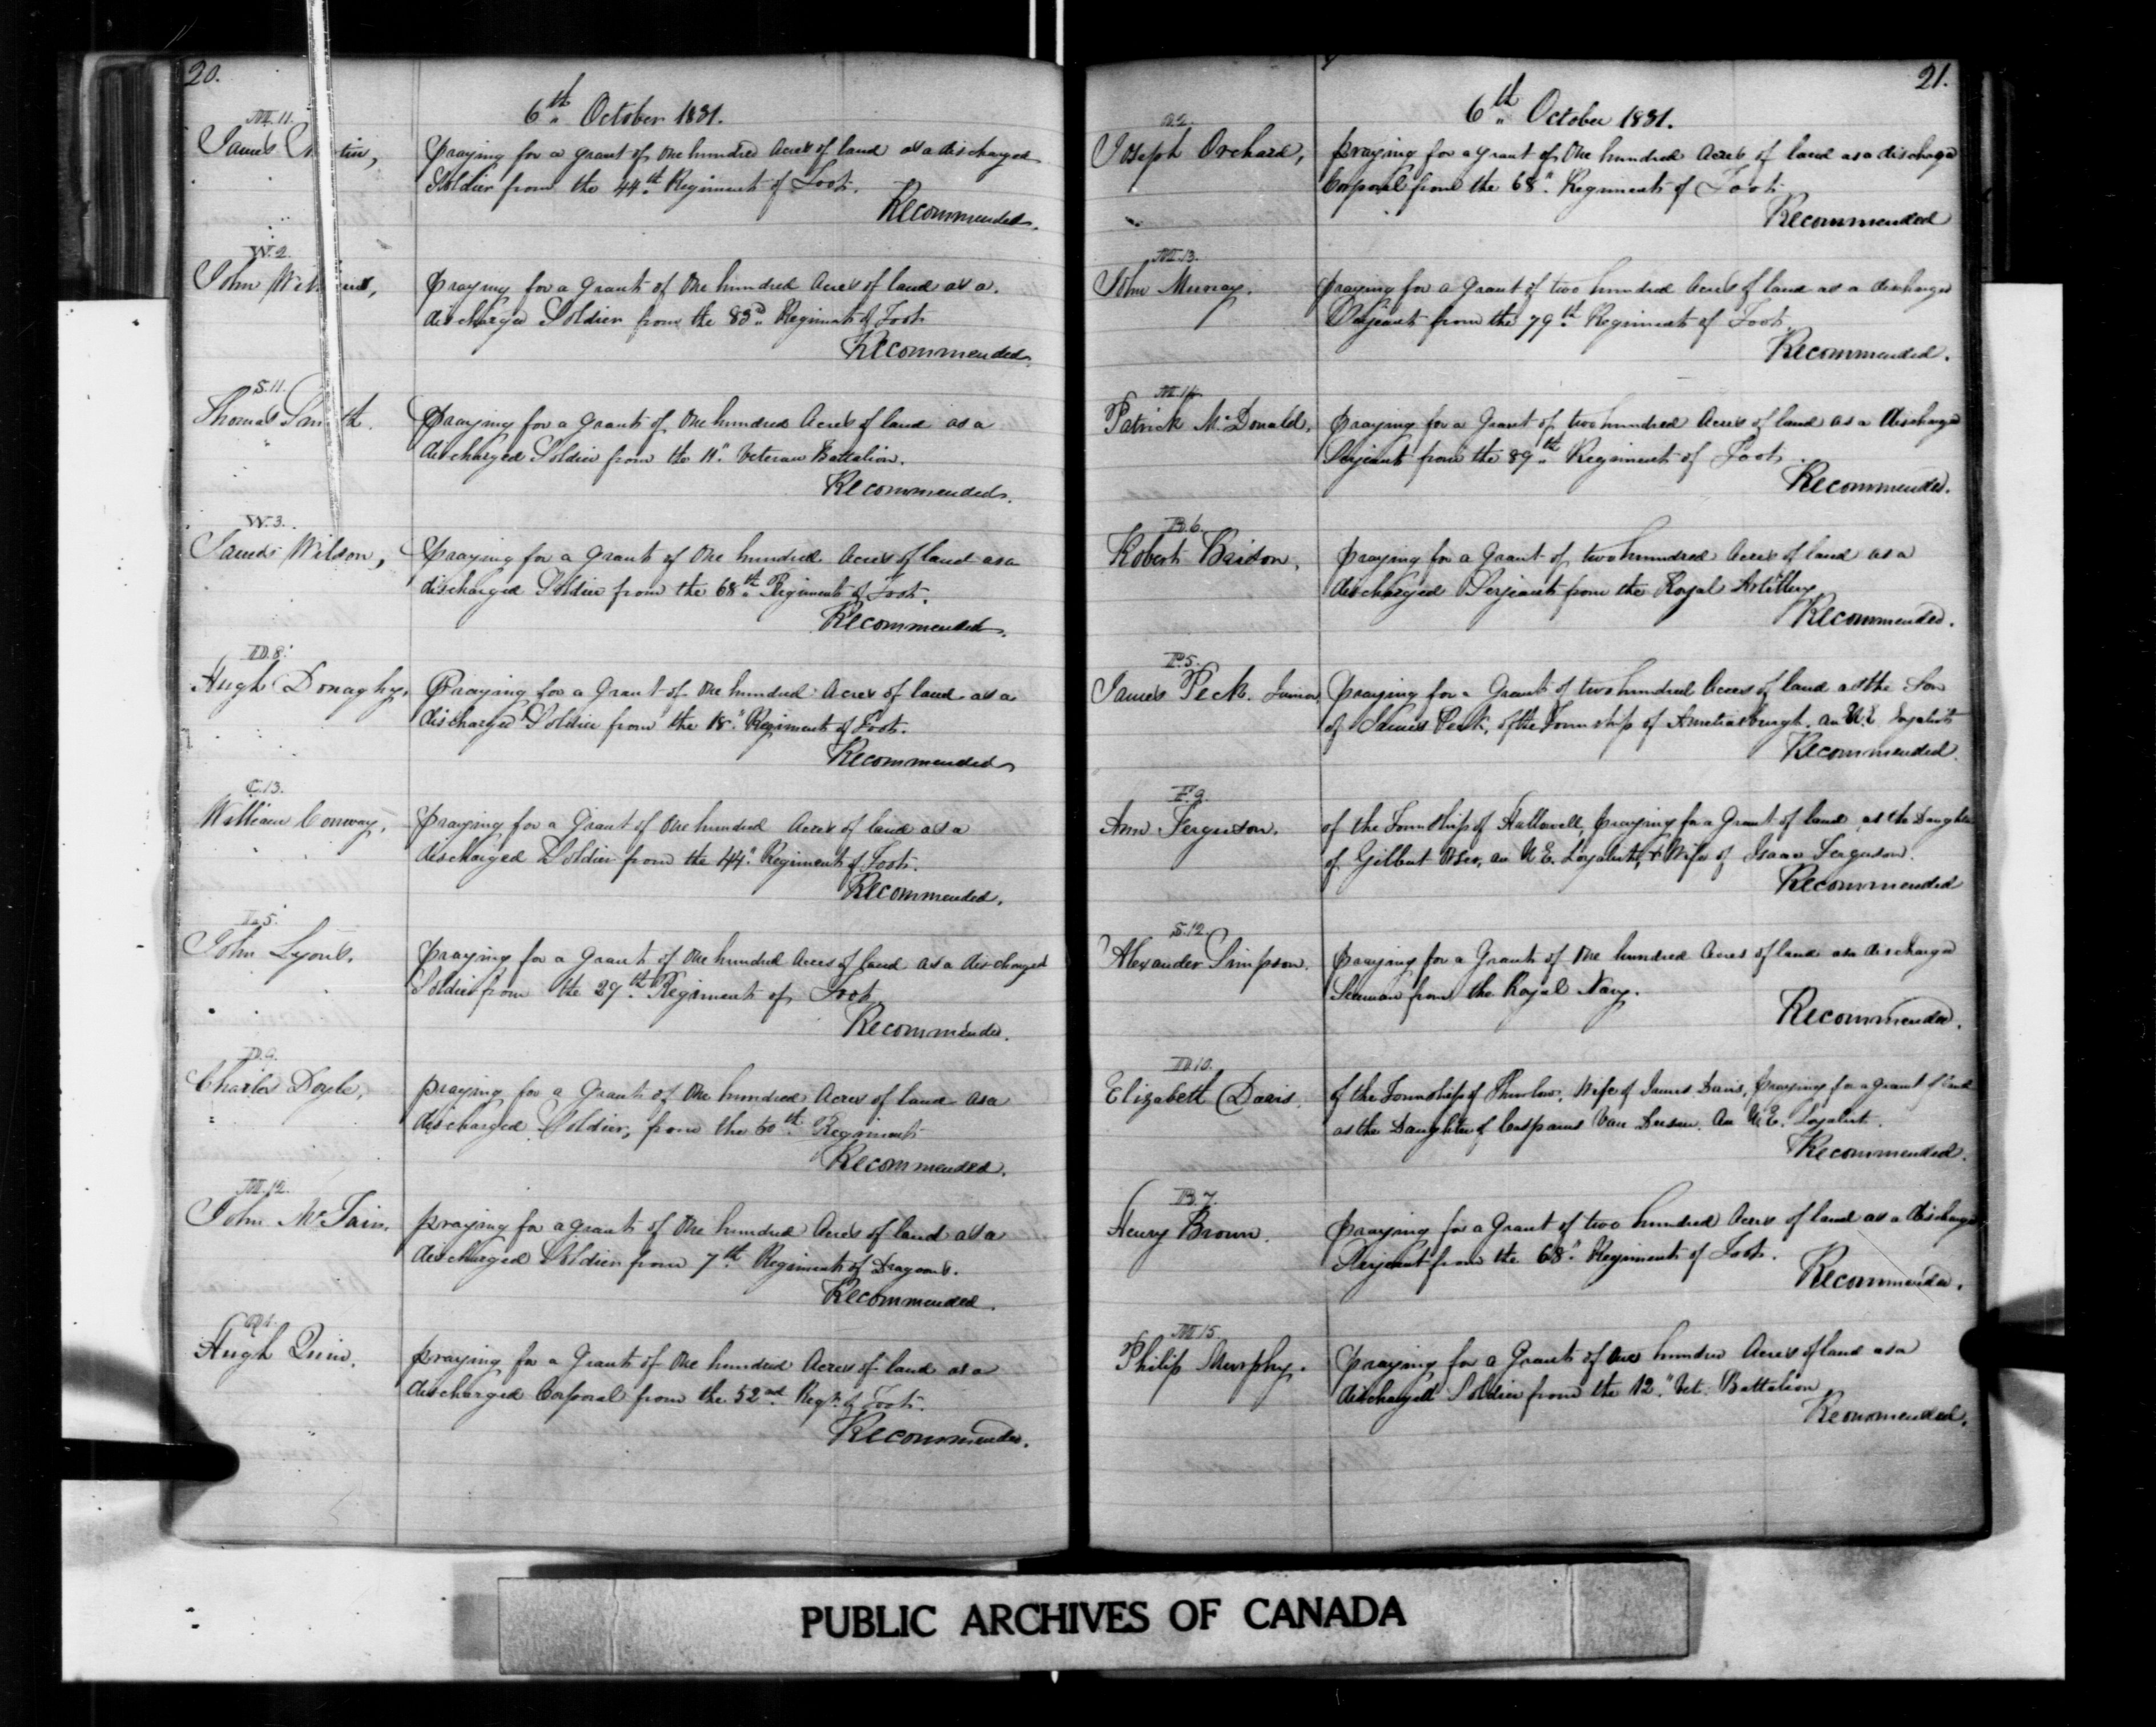 20.
6th October 1831.
M.11.
James
praying for a grant of One hundred Acres of land as a discharged
Soldier from the 44th Regiment of Foot.
Recommended.
W.2
John
praying for a Grant of One hundred Acres of land as a
discharged Soldier from the 83d Regiment of Foot
Recommended.
S.11.
Thomas Smith.
praying for a Grant of One hundred Acres of land as a
discharged Soldier from the 11" Veteran Battalion.
Recommended.
W.3.
James Wilson,
praying for a Grant of One hundred Acres of land as a
discharged Soldier from the 68th Regiment of Foot.
Recommended.
D.8.
Hugh Donaghy,
Praying for a Grant of One hundred Acres of land as a
discharged Soldier from the 18" Regiment of Foot.
Recommended
C.13.
William Conway,
praying for a Grant of One hundred Acres of land as a
discharged Soldier from the 44" Regiment of Foot.
Recommended.
L.5.
John Lyons.
praying for a Grant of One hundred Acres of land as a discharged
Soldier from the 29th Regiment of Foot
Recommended.
D.9.
Charles Doyle,
praying for a Grant of One hundred Acres of land as a
discharged Soldier, from the 60th Regiment
Recommended.
M.12.
John McFain.
praying for a grant of One hundred Acres of land as a
discharged Soldier from 7th Regiment of Dragoons.
Recommended.
Q.1.
Hugh Quin.
praying for a Grant of One hundred Acres of land as a
discharged Corporal from the 52nd Regt. of Foot.
Recommended.
21.
6th October 1831.
O.2.
Joseph Orchard,
praying for a grant of One hundred Acres of land as a discharged
Corporal from the 68" Regiment of Foot
Recommended
M.13.
John Murray.
praying for a Grant of two hundred Acres of land as a discharged
Serjeant from the 79th Regiment of Foot.
Recommended.
M.14.
Patrick McDonald,
praying for a Grant of two hundred Acres of land as a discharged
Serjeant from the 89th Regiment of Foot
Recommended.
B.6.
Robert
praying for a Grant of two hundred Acres of land as a
discharged Serjeant from the Royal Artillery
Recommended.
P.5.
James Peck. Junior
praying for a Grant of two hundred Acres of land as the Son
of James Peck, of the Township of Ameliasburgh. an U.E Loyalist
Recommended
F.9.
Ann Ferguson.
of the Township of Hallowell, praying for a Grant of land as the Daughter
of Gilbert an U.E. Loyalist, & Wife of Isaac Ferguson.
Recommended
S.12.
Alexander Simpson.
praying for a Grant of One hundred Acres of land as a discharged
Seaman from the Royal Navy.
Recommended.
D.10.
Elizabeth Davis.
of the Township of Thurlow, Wife of James Davis, praying for a grant of land
as the Daughter of Casparus Van Dusen. An U.E. Loyalist.
Recommended.
B.7.
Henry Brown.
praying for a Grant of two hundred Acres of land as a discharged
Serjeant from the 68" Regiment of Foot.
Recommended.
M.15.
Philip Murphy.
praying for a Grant of one hundred Acres of land as a
discharged Soldier from the 12" Vet. Battalion
Recommended.
PUBLIC ARCHIVES OF CANADA